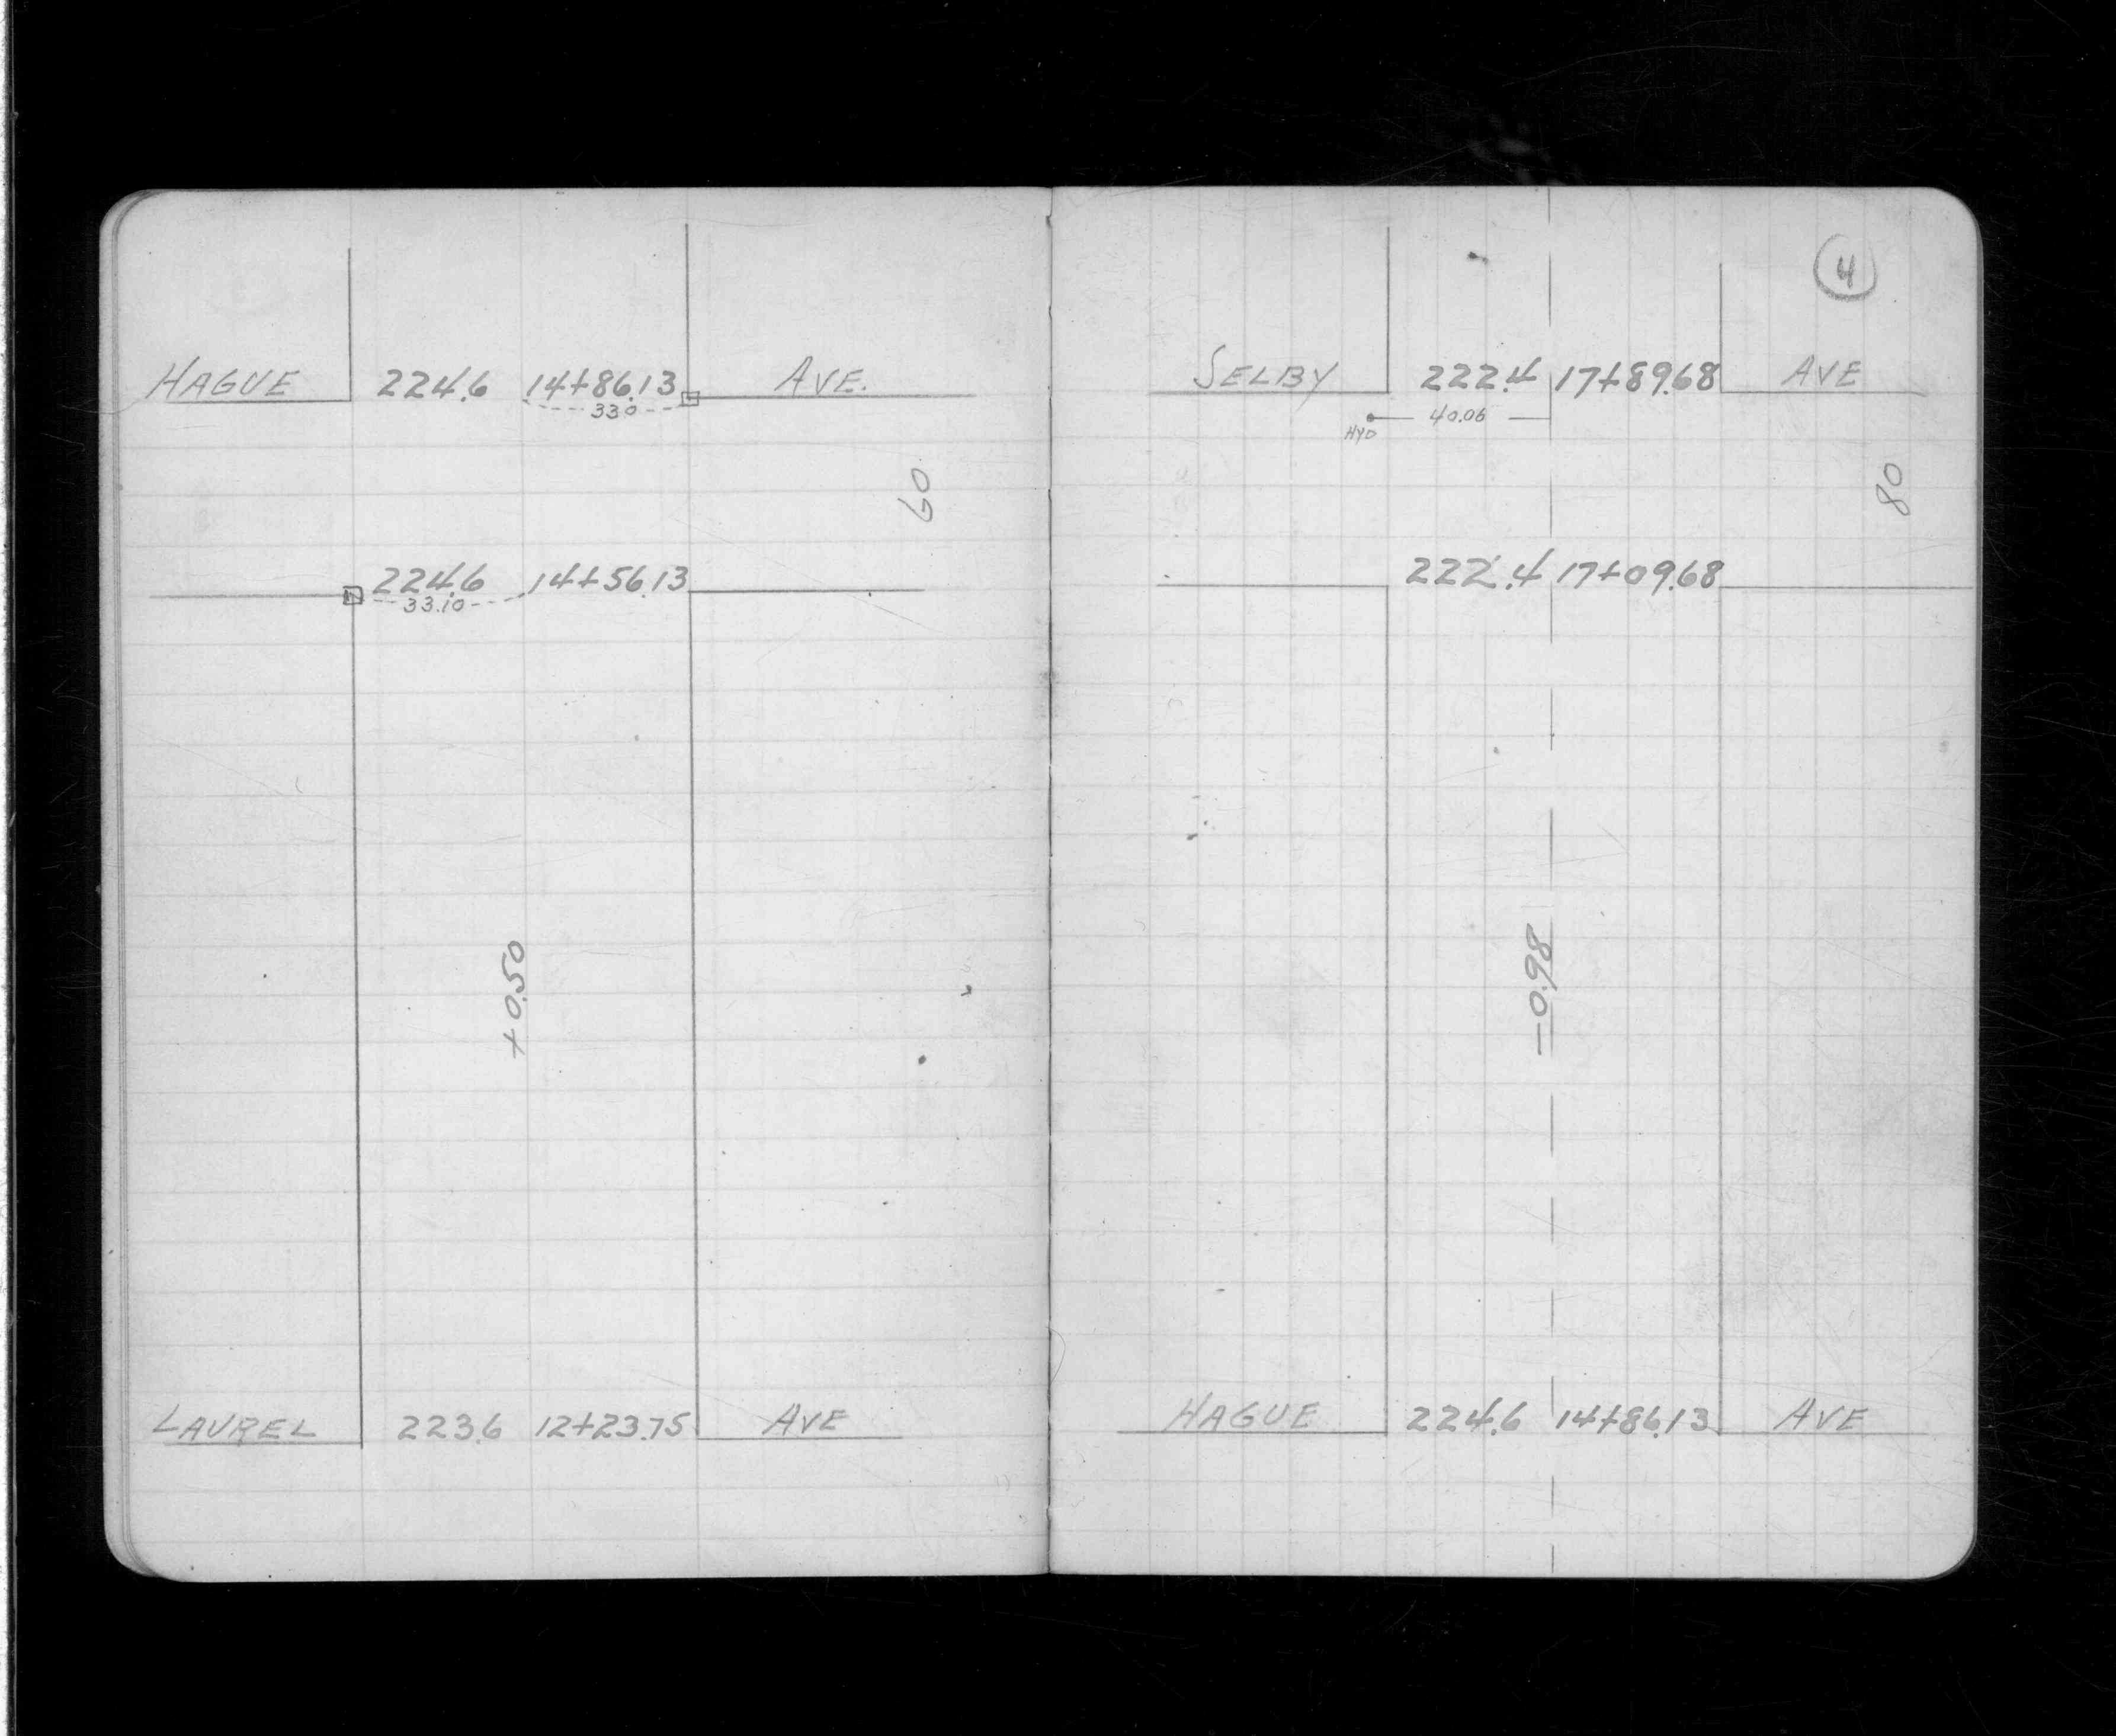 HAGUE 224.6 14+86.13 AVE.
33.0
60
224.6 14+56.13
33.10
+0.50
LAUREL 223.6 12+23.75 AVE
4
SELBY 222.4 17+89.68 AVE
HYD 40.06
80
222.4 17+09.68
-0.98
HAGUE 224.6 14+86.13 AVE